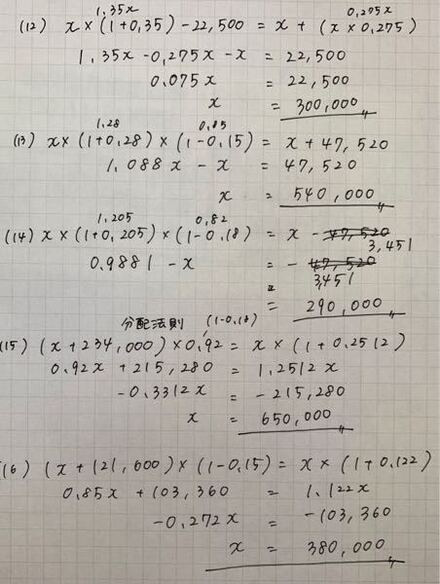 1.35x 0.275x
(12) x×(1+0.35)-22,500 = x + (x×0.275)
1.35x-0.275x-x = 22,500
0.075x = 22,500
x = 300,000
1.28 0.85
(13) x×(1+0.28)×(1-0.15) = x + 47,520
1.088x - x = 47,520
x = 540,000
1.205 0.82
(14) x×(1+0.205)×(1-0.18) = x - 47,520
3,451
0.9881 - x = - 47,520
3,451
= 290,000
分配法則 (1-0.18)
(15) (x+234,000)×0.92 = x×(1+0.2512)
0.92x + 215,280 = 1.2512x
-0.3312x = -215,280
x = 650,000
(16) (x+121,600)×(1-0.15) = x×(1+0.122)
0.85x + 103,360 = 1.122x
-0.272x = -103,360
x = 380,000